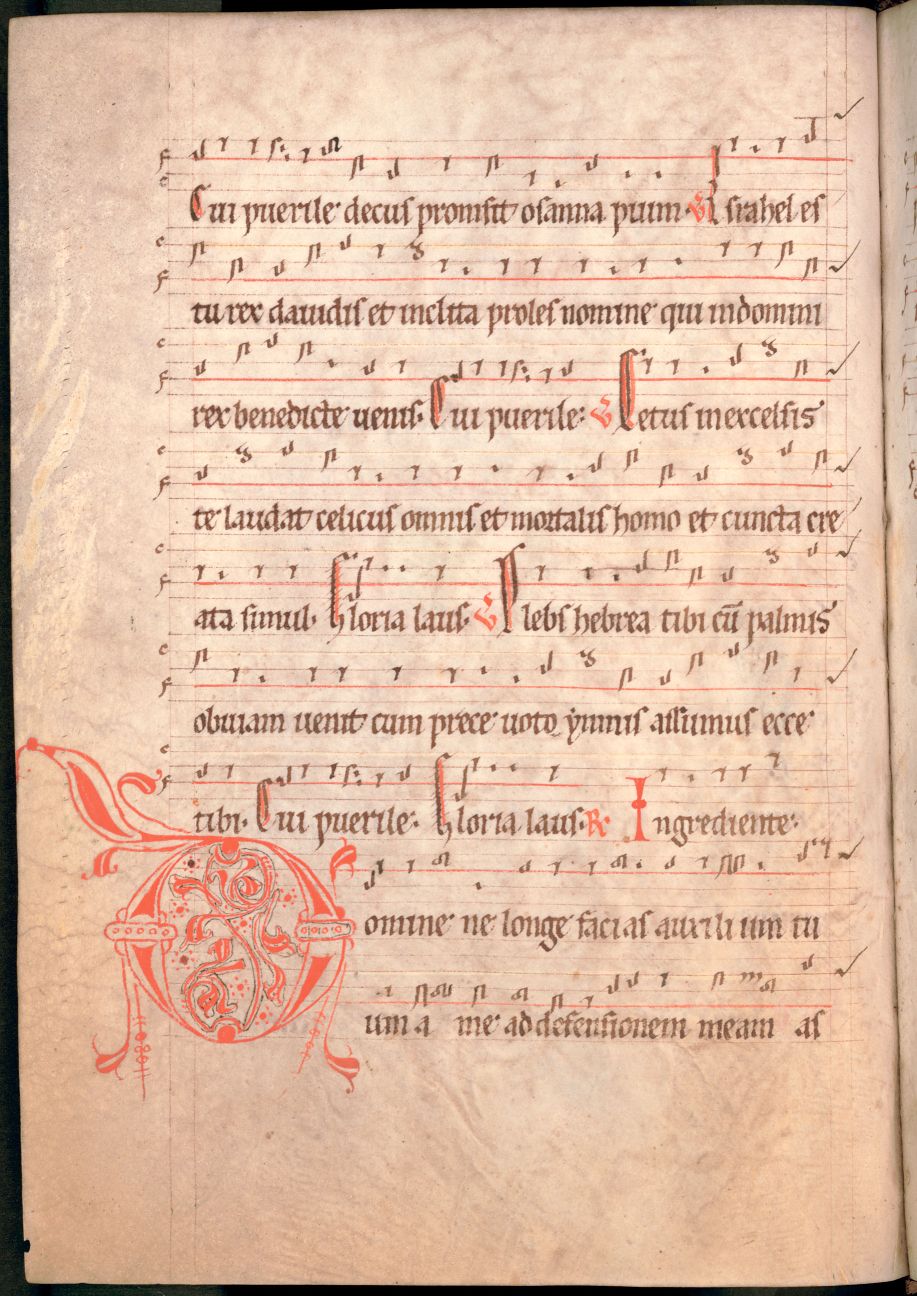 Cui puerile decus promsit osanna pium. V Israhel es
tu rex dauidis et inclita proles nomine qui indomini
rex benedicte uenis. Cui puerile. V Cetus inexcelsis
te laudat celicus omnis et mortalis homo et cuncta cre
ata simul. Gloria laus. V Plebs hebrea tibi cū palmis
obuiam uenit cum prece uoto ymnis assumus ecce
tibi. Cui puerile. Gloria laus. R Ingrediente.
Domine ne longe facias auxili um tu
um a me ad defensionem meam as